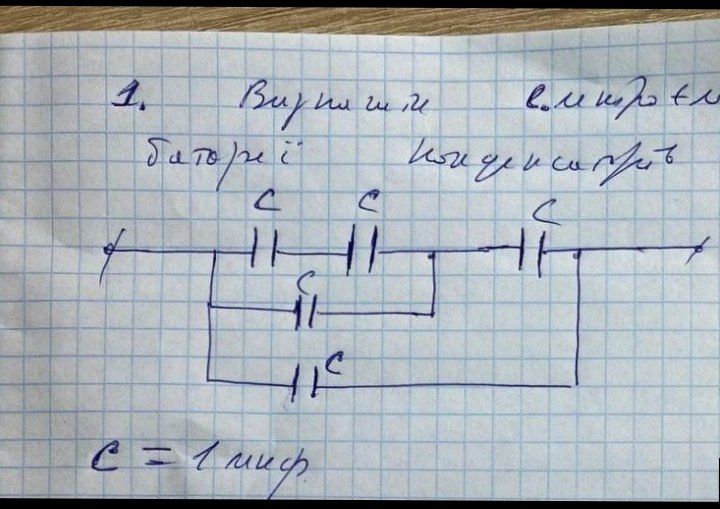 1. Визначити електроєм
батареї конденсаторів
C C C
C
C
C = 1 мкф.